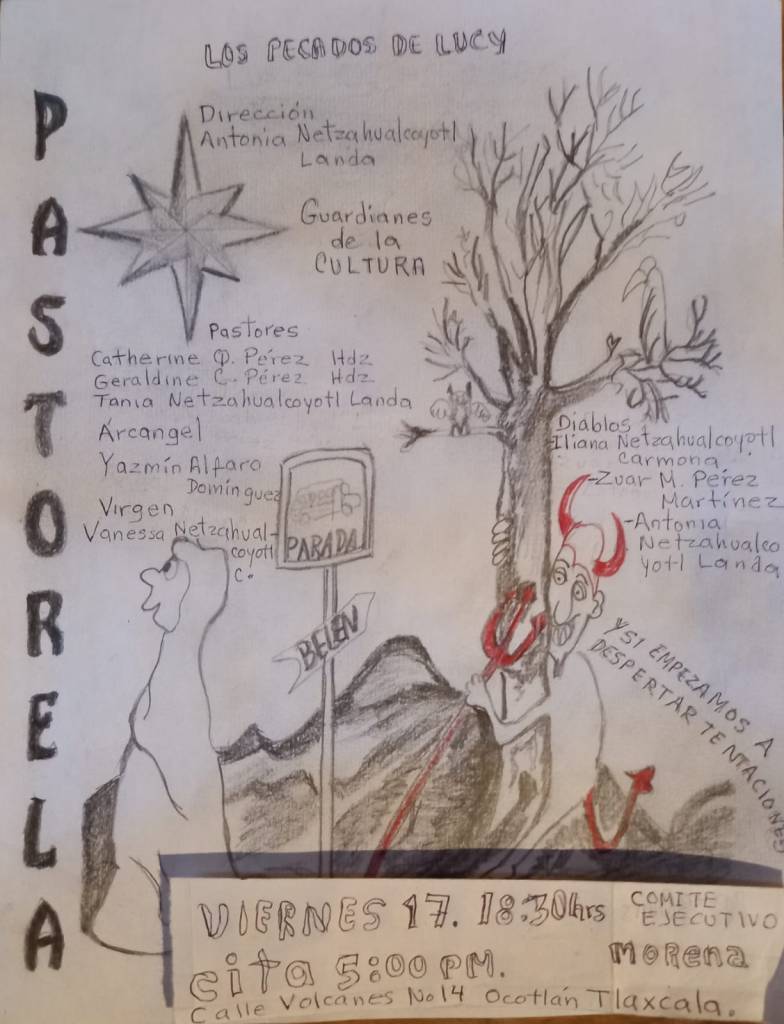 LOS PECADOS DE LUCY
PASTORELA
Dirección
Antonia Netzahualcoyotl
Landa
Guardianes
de la
CULTURA
Pastores
Catherine Q. Pérez Hdz
Geraldine C. Pérez Hdz
Tania Netzahualcoyotl Landa
Árcangel
Yazmín Alfaro
Domínguez
Virgen
Vanessa Netzahual-
coyotl
C.
Diablos
Iliana Netzahualcoyotl
Carmona
-Zuar M. Pérez
Martínez
-Antonia
Netzahualco
yotl Landa
PARADA
BELEN
Y SI EMPEZAMOS A
DESPERTAR TENTACIONES
VIERNES 17. 18:30hrs
cita 5:00 PM.
Calle Volcanes No14 Ocotlán Tlaxcala.
COMITE
EJECUTIVO
morena